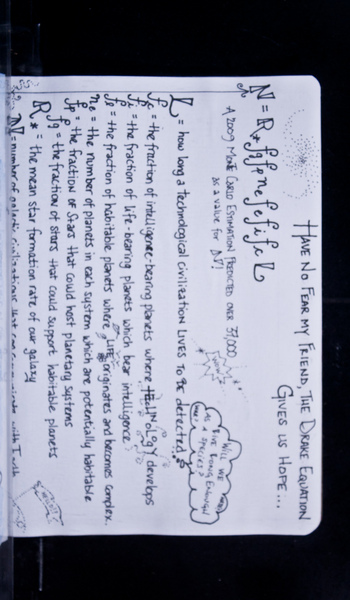 HAVE NO FEAR MY FRIEND, THE DRAKE EQUATION
GIVES US HOPE...
N = R* fg fp ne fl fi fc L
A 2009 MONTE CARLO ESTIMATION PREDICTED OVER 37,000
as a value for N!
WILL WE
LIVE LONG ENOUGH
AS A
SPECIES?
L = how long a technological civilization LIVES TO BE detected
fc = the fraction of intelligence-bearing planets where TECHNOLOGY develops
fi = the fraction of life-bearing planets which bear intelligence
fl = the fraction of habitable planets where LIFE originates and becomes complex.
ne = the number of planets in each system which are potentially habitable
fp = the fraction of stars that could host planetary systems
fg = the fraction of stars that could support habitable planets
R* = the mean star formation rate of our galaxy
N = number of galactic civilizations that can with